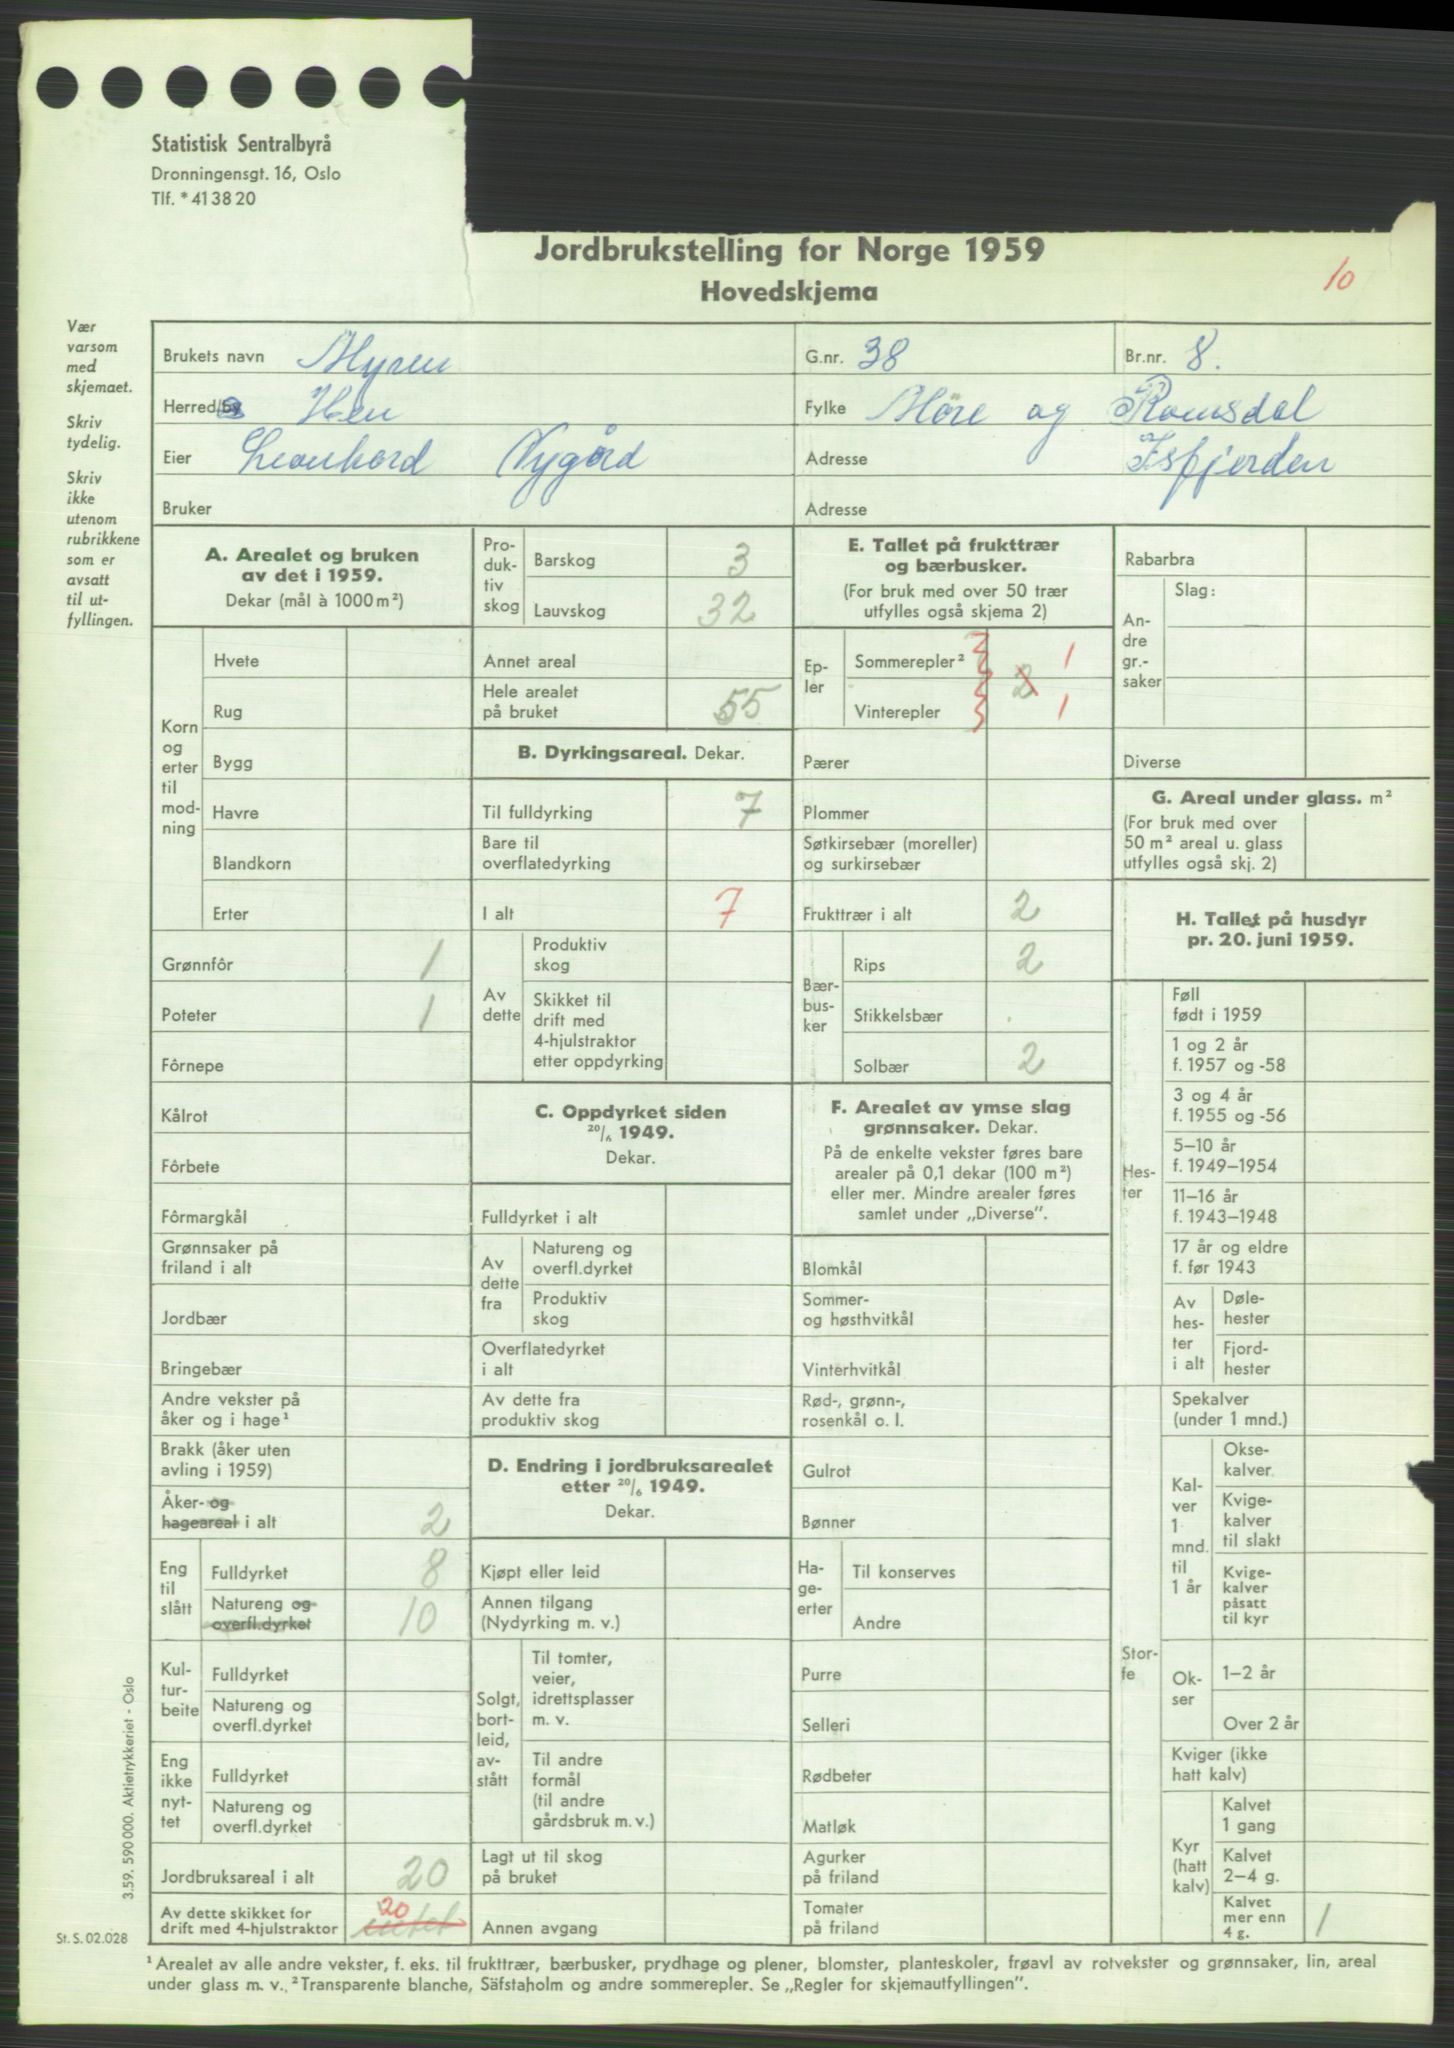 Statistisk Sentralbyrå
Dronningensgt. 16, Oslo
Tlf. * 41 38 20
Jordbrukstelling for Norge 1959
Hovedskjema
10
Vær
varsom
med
skjemaet.
Skriv
tydelig.
Skriv
ikke
utenom
rubrikkene
som er
avsatt
til ut-
fyllingen.
Brukets navn Myren
G.nr. 38
Br.nr. 8.
Herred/by Hen
Fylke Møre og Romsdal
Eier Leonhard Nygård
Adresse Isfjorden
Bruker
Adresse
A. Arealet og bruken
av det i 1959.
Dekar (mål à 1000 m²)
Korn
og
erter
til
mod-
ning
Hvete
Rug
Bygg
Havre
Blandkorn
Erter
Grønnfôr 1
Poteter 1
Fôrnepe
Kålrot
Fôrbete
Fôrmargkål
Grønnsaker på
friland i alt
Jordbær
Bringebær
Andre vekster på
åker og i hage¹
Brakk (åker uten
avling i 1959)
Åker- og
hageareal i alt 2
Eng
til
slått
Fulldyrket 8
Natureng og
overfl.dyrket 10
Kul-
tur-
beite
Fulldyrket
Natureng og
overfl.dyrket
Eng
ikke
nyt-
tet
Fulldyrket
Natureng og
overfl.dyrket
Jordbruksareal i alt 20
Av dette skikket for
drift med 4-hjulstraktor 20
Pro-
duk-
tiv
skog
Barskog 3
Lauvskog 32
Annet areal
Hele arealet
på bruket 55
B. Dyrkingsareal. Dekar.
Til fulldyrking 7
Bare til
overflatedyrking
I alt 7
Av
dette
Produktiv
skog
Skikket til
drift med
4-hjulstraktor
etter oppdyrking
C. Oppdyrket siden
20/6 1949.
Dekar.
Fulldyrket i alt
Av
dette
fra
Natureng og
overfl.dyrket
Produktiv
skog
Overflatedyrket
i alt
Av dette fra
produktiv skog
D. Endring i jordbruksarealet
etter 20/6 1949.
Dekar.
Kjøpt eller leid
Annen tilgang
(Nydyrking m. v.)
Solgt,
bort-
leid,
av-
stått
Til tomter,
veier,
idrettsplasser
m. v.
Til andre
formål
(til andre
gårdsbruk m. v.)
Lagt ut til skog
på bruket
Annen avgang
E. Tallet på frukttrær
og bærbusker.
(For bruk med over 50 trær
utfylles også skjema 2)
Ep-
ler
Sommerepler² 1
2
Vinterepler 1
Pærer
Plommer
Søtkirsebær (moreller)
og surkirsebær
Frukttrær i alt 2
Bær-
bus-
ker
Rips 2
Stikkelsbær .
Solbær 2
F. Arealet av ymse slag
grønnsaker. Dekar.
På de enkelte vekster føres bare
arealer på 0,1 dekar (100 m²)
eller mer. Mindre arealer føres
samlet under „Diverse”.
Blomkål
Sommer-
og høsthvitkål
Vinterhvitkål
Rød-, grønn-,
rosenkål o. l.
Gulrot
Bønner
Ha-
ge-
erter
Til konserves
Andre
Purre
Selleri
Rødbeter
Matløk
Agurker
på friland
Tomater
på friland
Rabarbra
An-
dre
gr.-
saker
Slag:
Diverse
G. Areal under glass. m²
(For bruk med over
50 m² areal u. glass
utfylles også skj. 2)
H. Tallet på husdyr
pr. 20. juni 1959.
Hes-
ter
Føll
født i 1959
1 og 2 år
f. 1957 og -58
3 og 4 år
f. 1955 og -56
5–10 år
f. 1949–1954
11–16 år
f. 1943–1948
17 år og eldre
f. før 1943
Av
hes-
ter
i alt
Døle-
hester
Fjord-
hester
Stor-
fe
Spekalver
(under 1 mnd.)
Kal-
ver
1
mnd.
til
1 år
Okse-
kalver
Kvige-
kalver
til slakt
Kvige-
kalver
påsatt
til kyr
Ok-
ser
1–2 år
Over 2 år
Kviger (ikke
hatt kalv)
Kyr
(hatt
kalv)
Kalvet
1 gang
Kalvet
2–4 g.
Kalvet
mer enn
4 g. 1
3.59. 590 000. Aktietrykkeriet - Oslo
St. S. 02.028
¹ Arealet av alle andre vekster, f. eks. til frukttrær, bærbusker, prydhage og plener, blomster, planteskoler, frøavl av rotvekster og grønnsaker, lin, areal
under glass m. v., ² Transparente blanche, Säfstaholm og andre sommerepler. Se „Regler for skjemautfyllingen”.